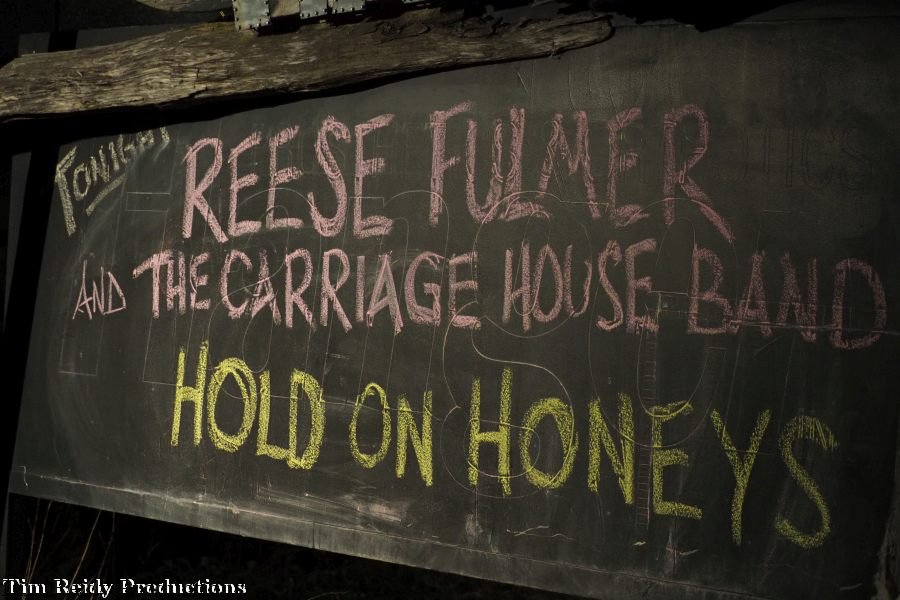 TONIGHT
REESE FULMER
AND THE CARRIAGE HOUSE BAND
HOLD ON HONEYS
Tim Reidy Productions